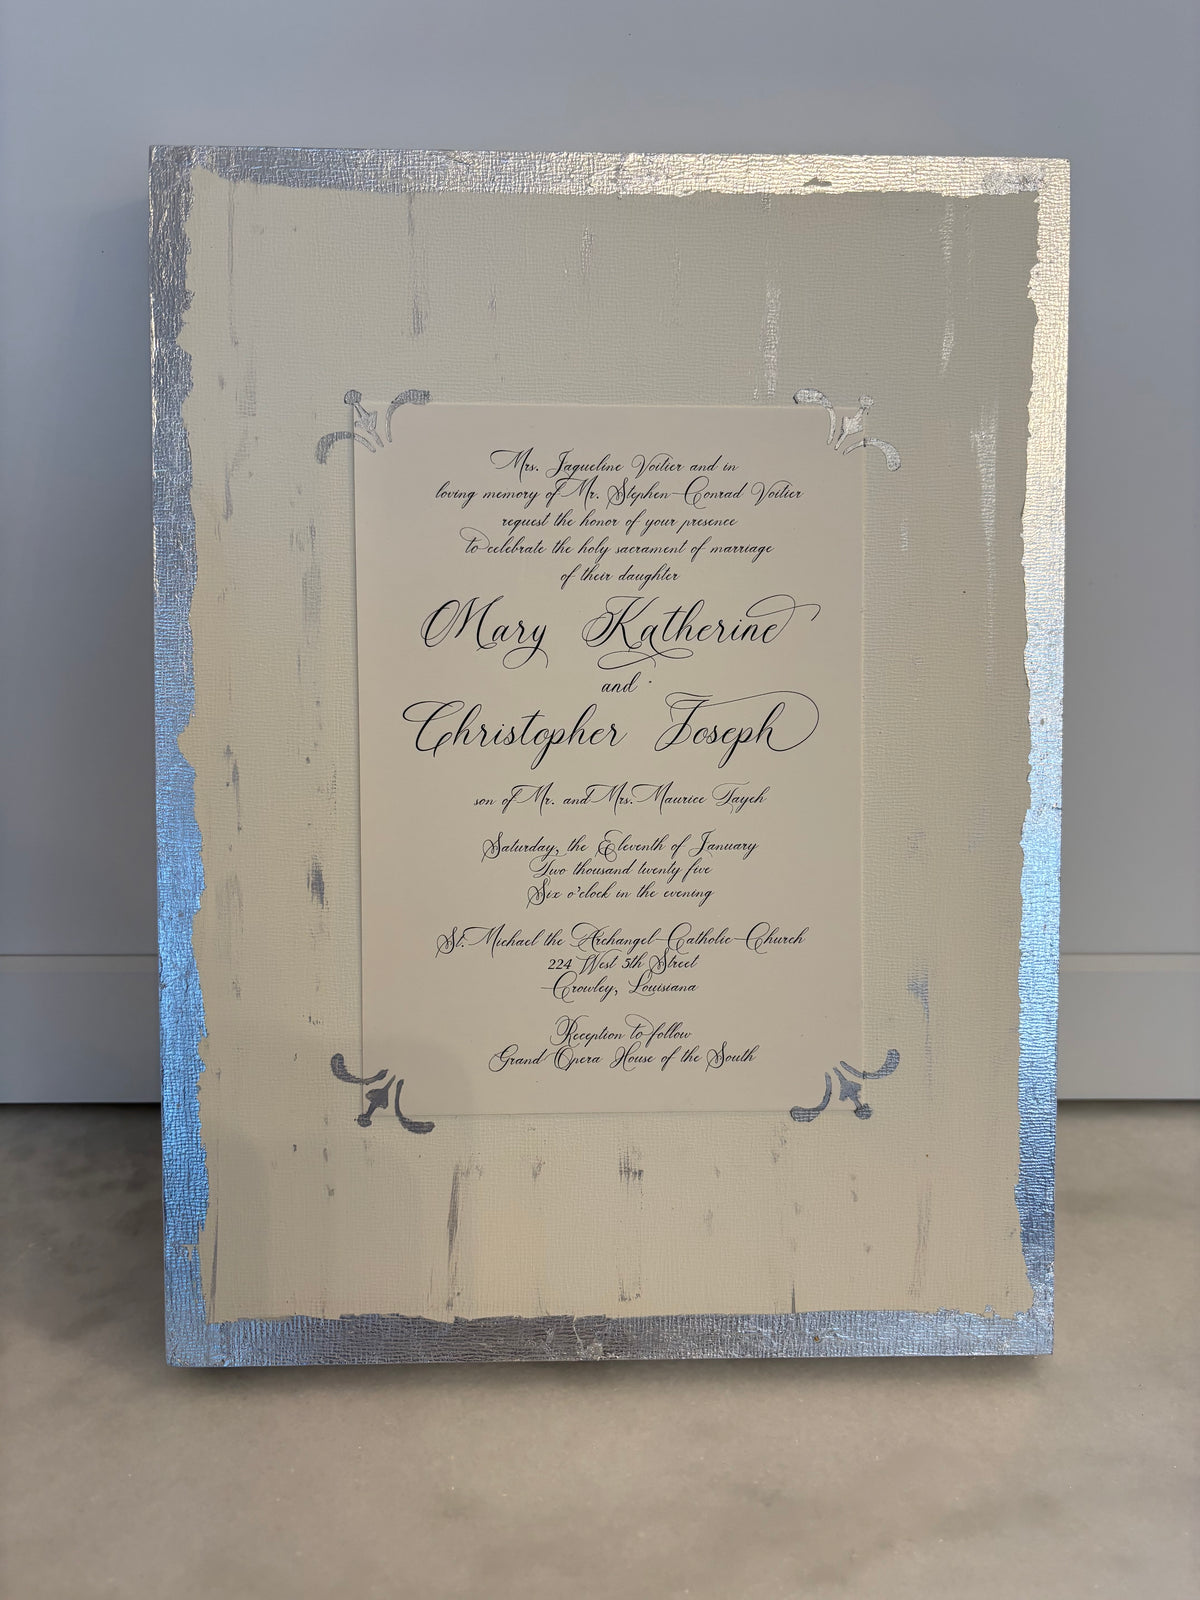 Mrs. Jaqueline Voitier and in
loving memory of Mr. Stephen Conrad Voitier
request the honor of your presence
to celebrate the holy sacrament of marriage
of their daughter
Mary Katherine
and
Christopher Joseph
son of Mr. and Mrs. Maurice Tayeh
Saturday, the Eleventh of January
Two thousand twenty five
Six o'clock in the evening
St. Michael the Archangel Catholic Church
224 West 5th Street
Crowley, Louisiana
Reception to follow
Grand Opera House of the South